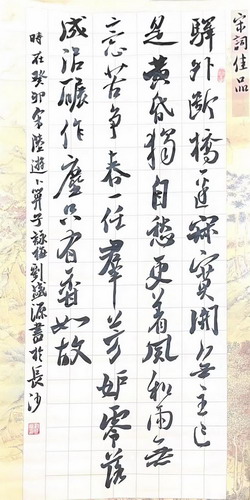 宋詞佳品
驛外斷橋邊寂寞開無主已
是黄昏獨自愁更着風和雨無
意苦争春一任羣芳妒零落
成泥碾作塵只有香如故
時在癸卯年陸遊卜算子詠梅劉盛源書於長沙